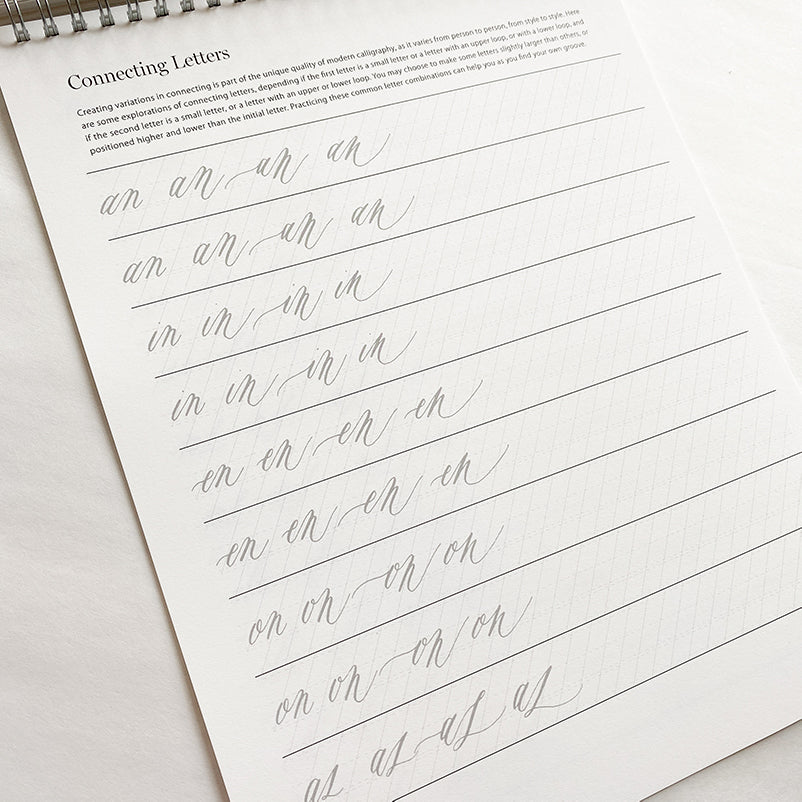 Connecting Letters
Creating variations in connecting is part of the unique quality of modern calligraphy, as it varies from person to person, from style to style. Here
are some explorations of connecting letters, depending if the first letter is a small letter or a letter with an upper loop, or with a lower loop, and
if the second letter is a small letter, or a letter with an upper or lower loop. You may choose to make some letters slightly larger than others, or
positioned higher and lower than the initial letter. Practicing these common letter combinations can help you as you find your own groove.
an an an an
an an an an
in in in in
in in in in
en en en en
en en en en
on on on on
on on on on
as as as as